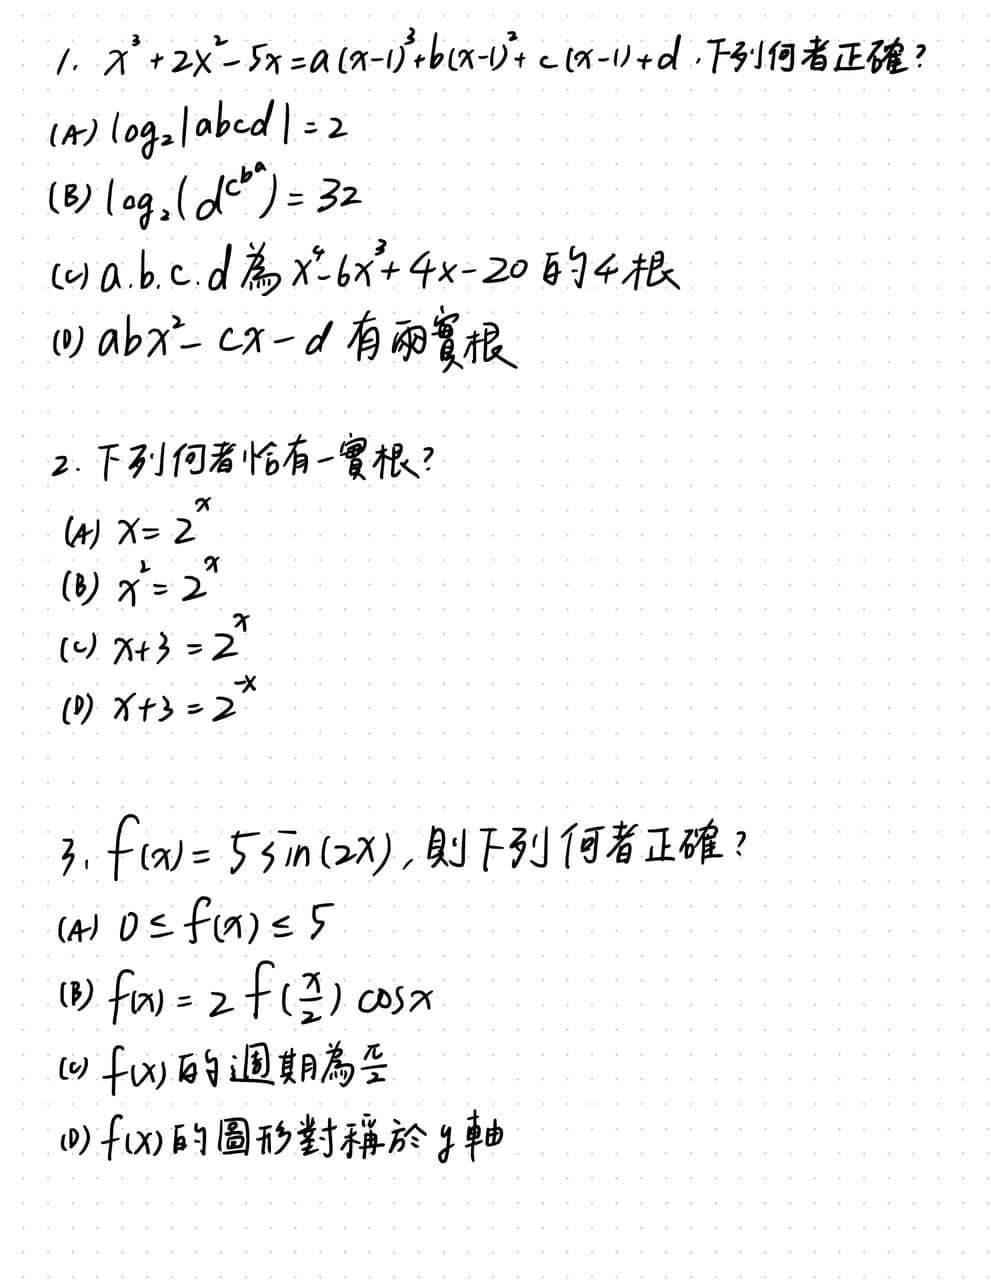 1. x³+2x²-5x=a(x-1)³+b(x-1)²+c(x-1)+d,下列何者正確?
(A) log₂|abcd|=2
(B) log₂(d^c^b^a)=32
(C) a.b.c.d為x⁴-6x³+4x-20的4根
(D) abx²-cx-d有兩實根
2.下列何者恰有一實根?
(A) x=2^x
(B) x²=2^x
(C) x+3=2^x
(D) x+3=2^-x
3. f(x)=5sin(2x),則下列何者正確?
(A) 0≤f(x)≤5
(B) f(x)=2f(x/2)cosx
(C) f(x)的週期為π/2
(D) f(x)的圖形對稱於y軸